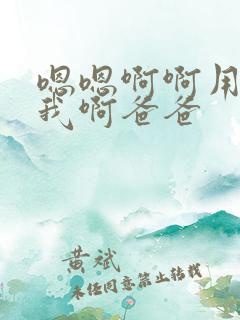 嗯嗯啊啊用
我啊爸爸
黄斌
未经同意禁止转载